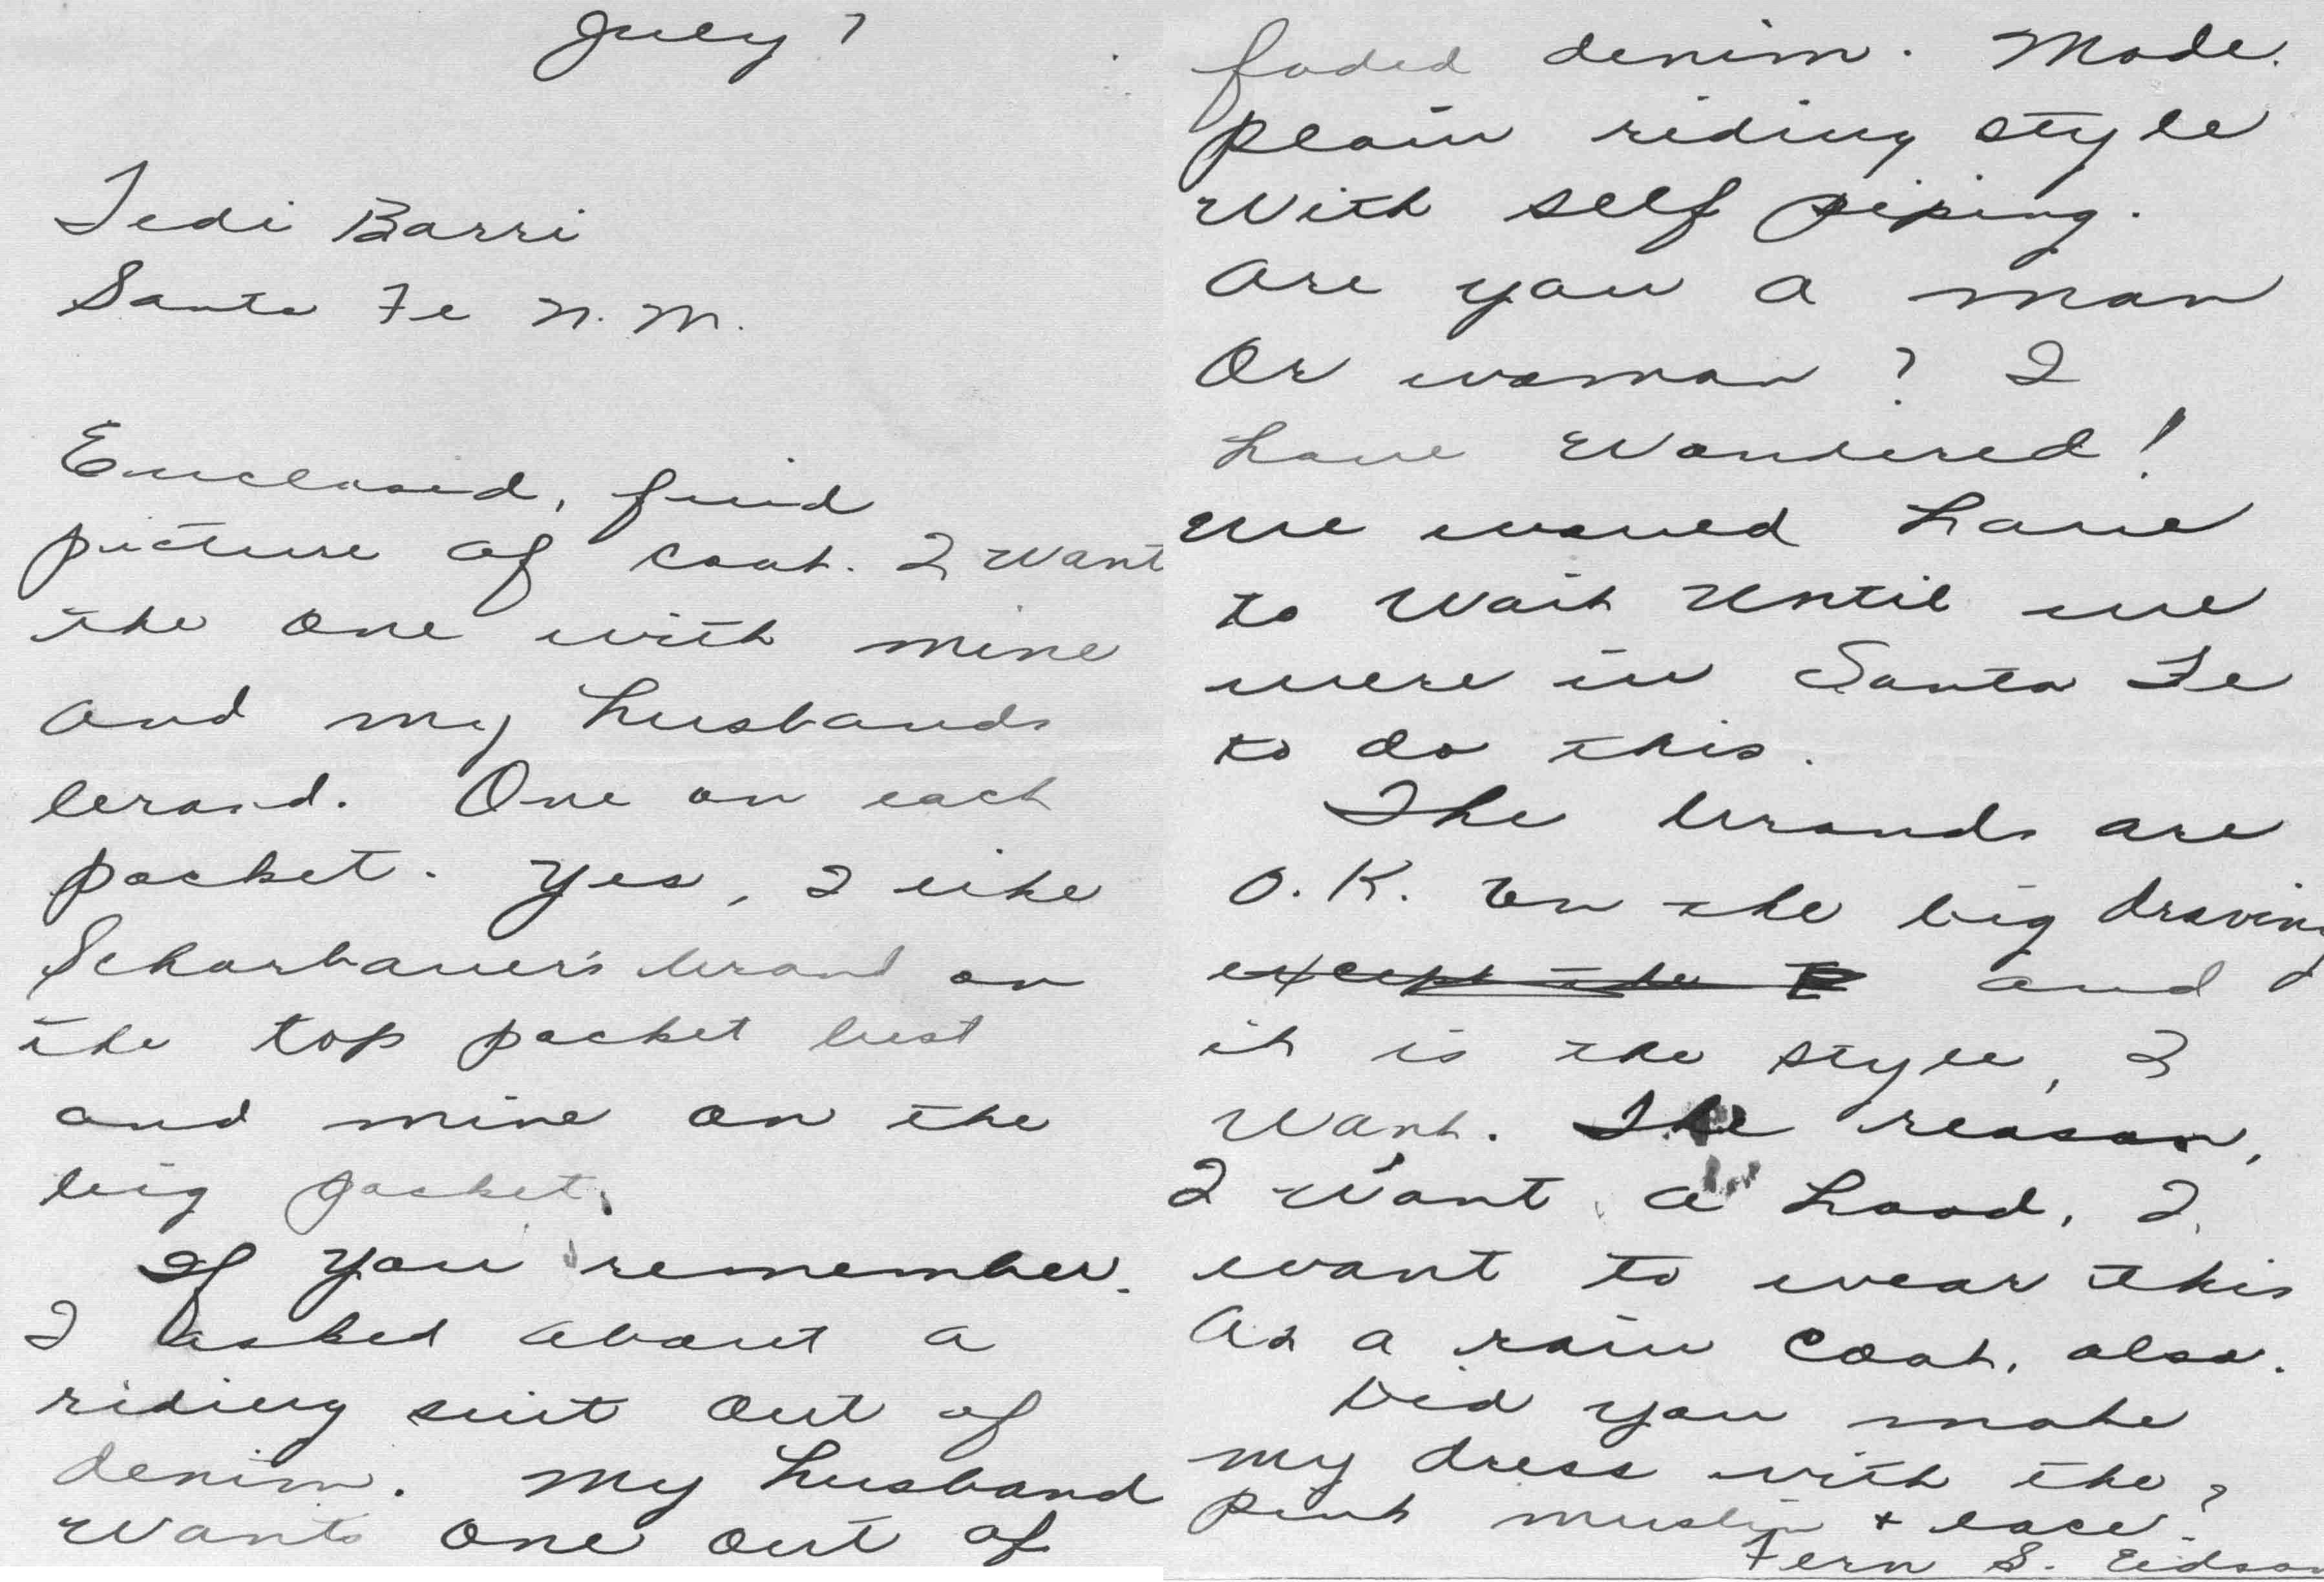 July 7
Tedi Barri
Santa Fe N. M.
Enclosed, find
picture of coat. I want
the one with mine
and my husbands
brand. One on each
pocket. Yes, I like
Scharbauer's brand on
the top pocket best
and mine on the
big pocket.
If you remember.
I asked about a
riding suit out of
denim. My husband
wants one out of
faded denim. Made.
plain riding style
with self piping.
Are you a man
or woman? I
have wondered!
We would have
to wait until we
were in Santa Fe
to do this.
The brands are
O.K. on the big drawing
except the and
it is the style, I
want. The reason,
I want a hood, I
want to wear this
as a rain coat, also.
Did you make
my dress with the
pink muslin + lace?
Fern S. Eidson